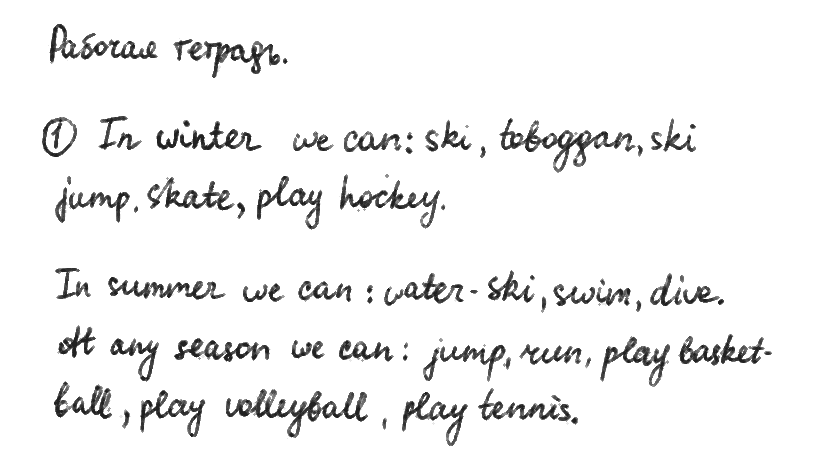 Рабочая тетрадь.
① In winter we can: ski, toboggan, ski
jump, skate, play hockey.
In summer we can: water-ski, swim, dive.
At any season we can: jump, run, play basket-
ball, play volleyball, play tennis.